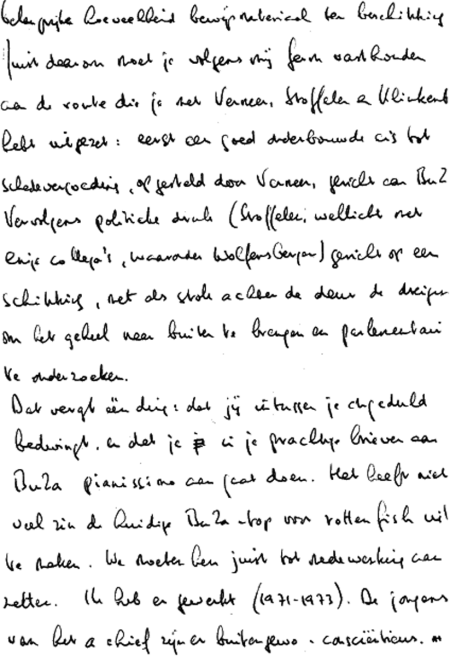 belangrijke hoeveelheid bewijsmateriaal ter beschikking
Juist daarom moet je volgens mij ferm vasthouden
aan de route die je met Vermeer, Stoffelen en Klinkenb
hebt uitgezet: eerst een goed onderbouwde eis tot
schadevergoeding, opgesteld door Vermeer, gericht aan BuZ
Vervolgens politieke druk (Stoffelen, wellicht met
enige collega's, waaronder Wolffensperger) gericht op een
schikking, met als stok achter de deur de dreigen
om het geheel naar buiten te brengen en parlementair
te onderzoeken.
Dat vergt één ding: dat jij intussen je ongeduld
bedwingt. en dat je in je prachtige brieven aan
BuZa pianissimo aan gaat doen. Het heeft niet
veel zin de huidige BuZa-top voor rotten fish uit
te maken. We moeten hen juist tot medewerking aan
zetten. Ik heb er gewerkt (1971-1973). De jongens
van het a chief zijn er buitengewo. consciëntieus. m